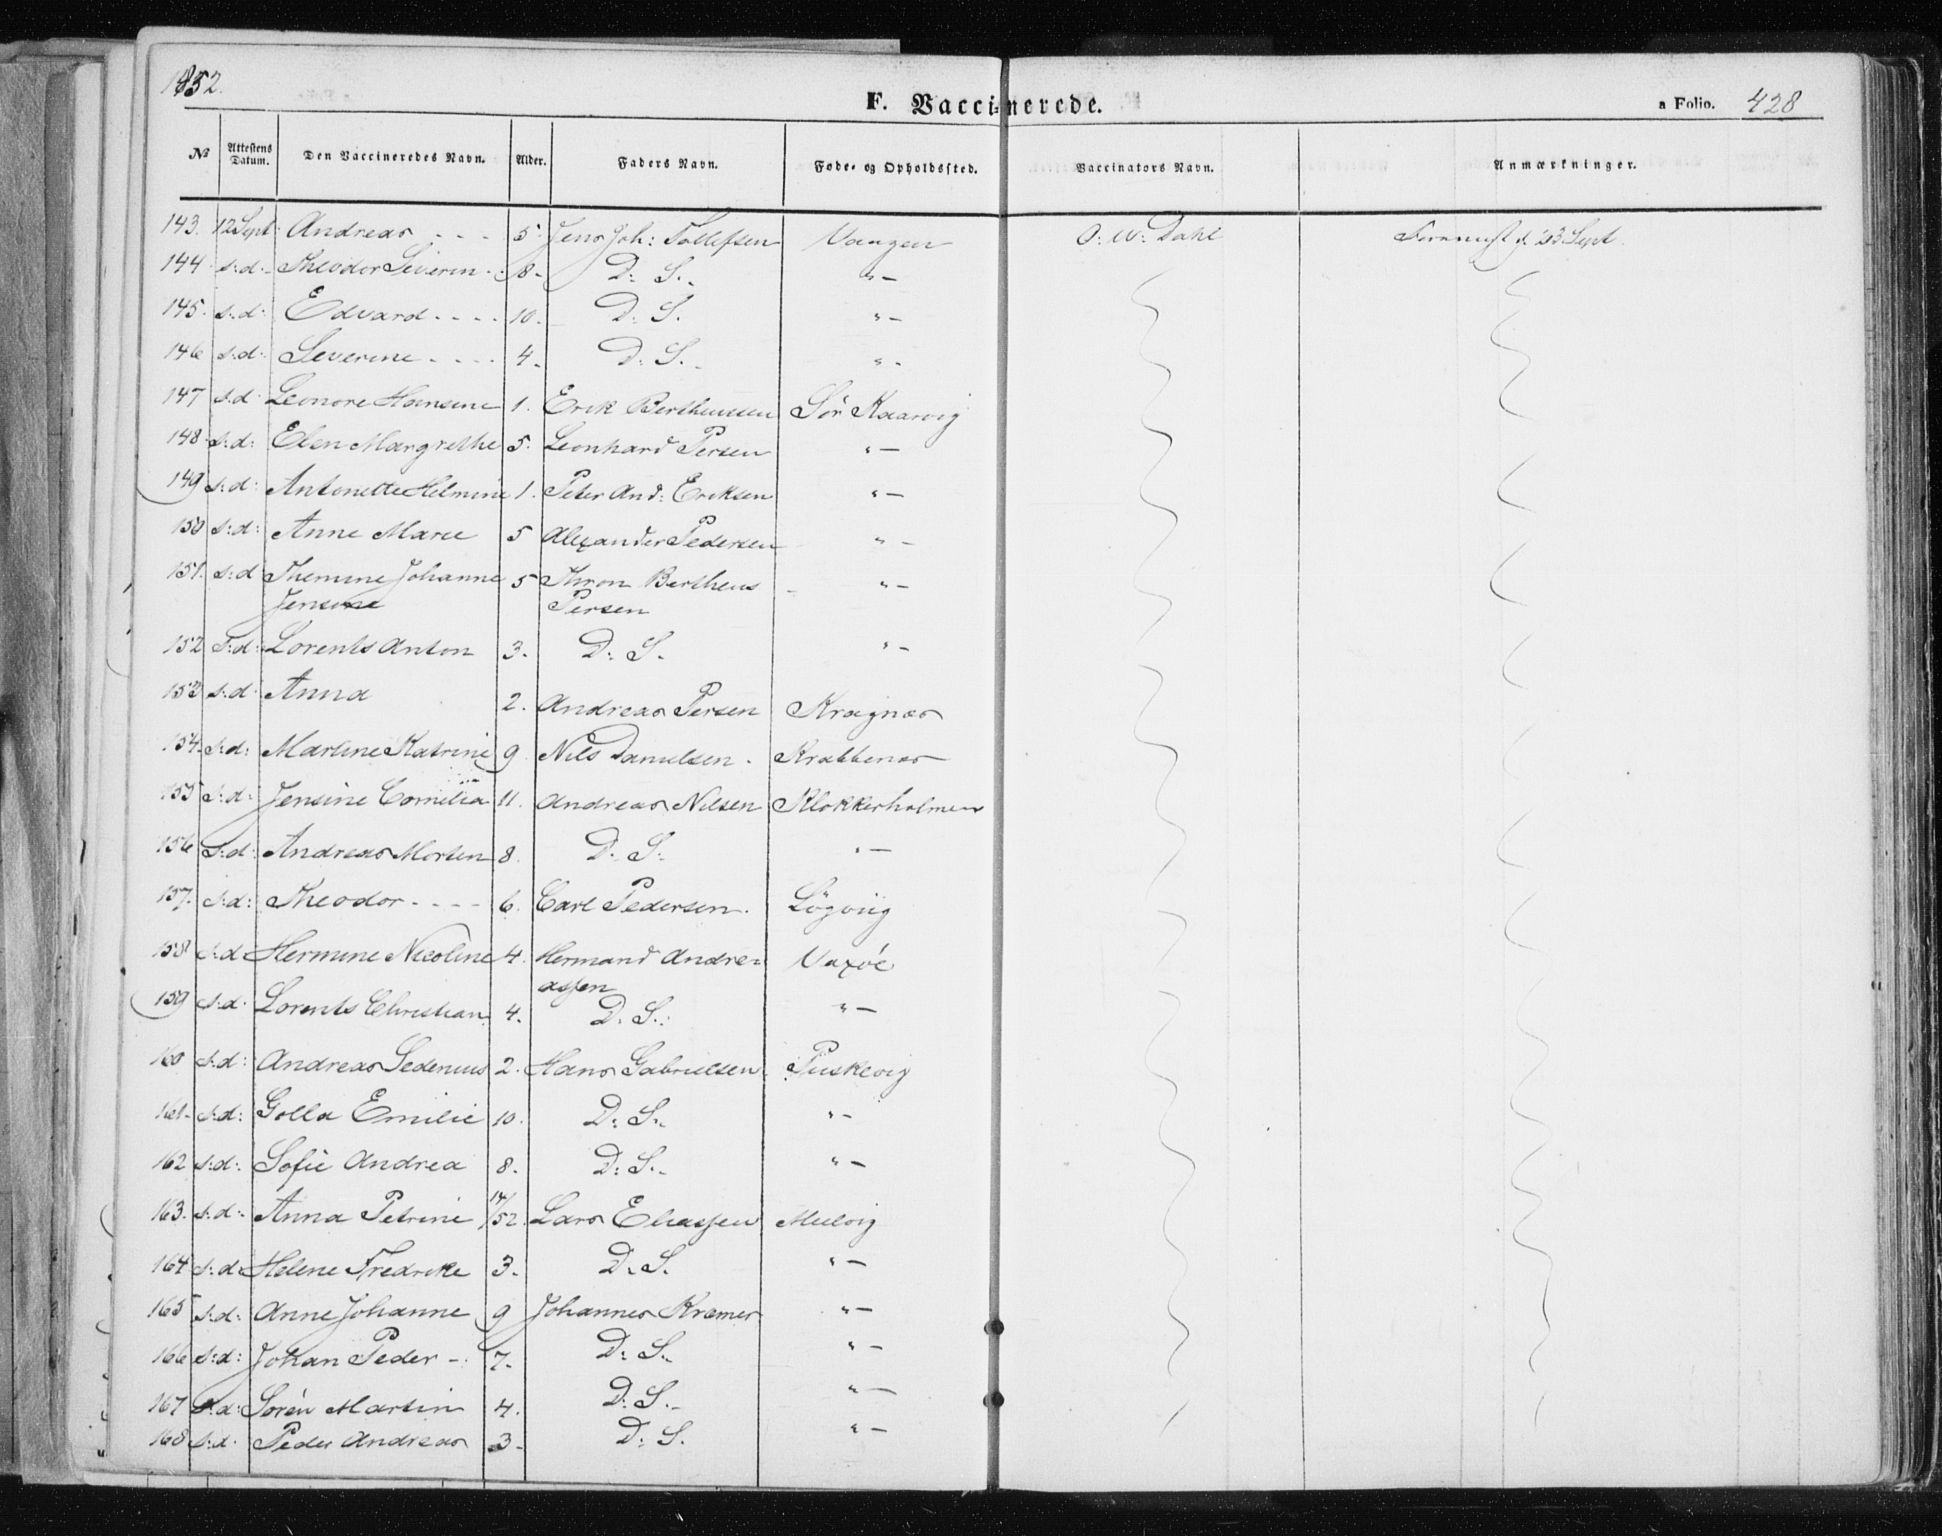 1852.
F. Vaccinerede.
a Folio. 428
№ Attestens Datum. Den Vaccineredes Navn. Alder. Faders Navn. Føde- og Opholdssted. Vaccinators Navn. Anmærkninger.
143. 12 Sept Andreas - - - 5 Jens Joh: Tollefsen Vaagen O: W: Dahl d. 23 Sept.
144. s:d:- Theodor Severin - 8- D: S.- "-
145. s:d: Edvard - - - - 10.- D. S. "-
146 s:d: Severine - - - - 4.- D: S.- "-
147 s:d Leonore Hansine 1. Erik Bertheussen Sör Kaarvig
148. s:d: Elen Margrethe 5. Leonhard Persen "-
149 s:d: Antonette Helmine 1. Peter And: Eriksen "-
150 s:d: Anne Marie 5 Alexander Pedersen "-
151. s:d Themine Johanne 5 Thron Bertheus - "-
Jensine Persen
152 s:d: Lorents Anton 3. D: S. "-
153 s:d. Anna 2. Andreas Persen Kragnæs
154. s:d: Martine Katrine 9 Nils Danielsen. Krabbenæs
155 s:d: Jensine Cornelia 11. Andreas Nilsen Klokkerholmen
156 s:d: Andreas Morten 8. D. S: "-
157. s:d: Theodor - - - - 6. Carl Pedersen. Lögviig
158 s:d Hermine Nicoline 4. Hermand Andre= Vaxöe
assen
159 s.d. Lorents Christian 4. D. S.: "-
160 s:d: Andreas Sedenius 2. Hans Gabrielsen. Puskevig
161- s:d: Golla Emilie 10. D: S.- "-
162 s:d:. Sofie Andrea 8. D: S.- "-
163. s.d:. Anna Petrine 14/52. Lars Eliassen Mulvig
164 s:d. Helene Fredrike 3. D. S. "-
165 s.d: Anne Johanne 9 Johannes Kræmer "-
166 s:d: Johan Peder - 7. D: S.- "-
167 s.d: Sören Martin 4. D: S.- "-
168 s:d. Peder Andreas 3- D: S. "-